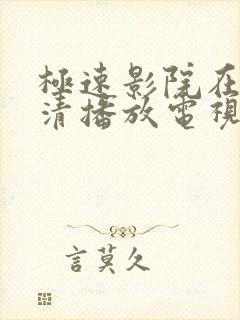 極速影院在
清播放電視
言莫久